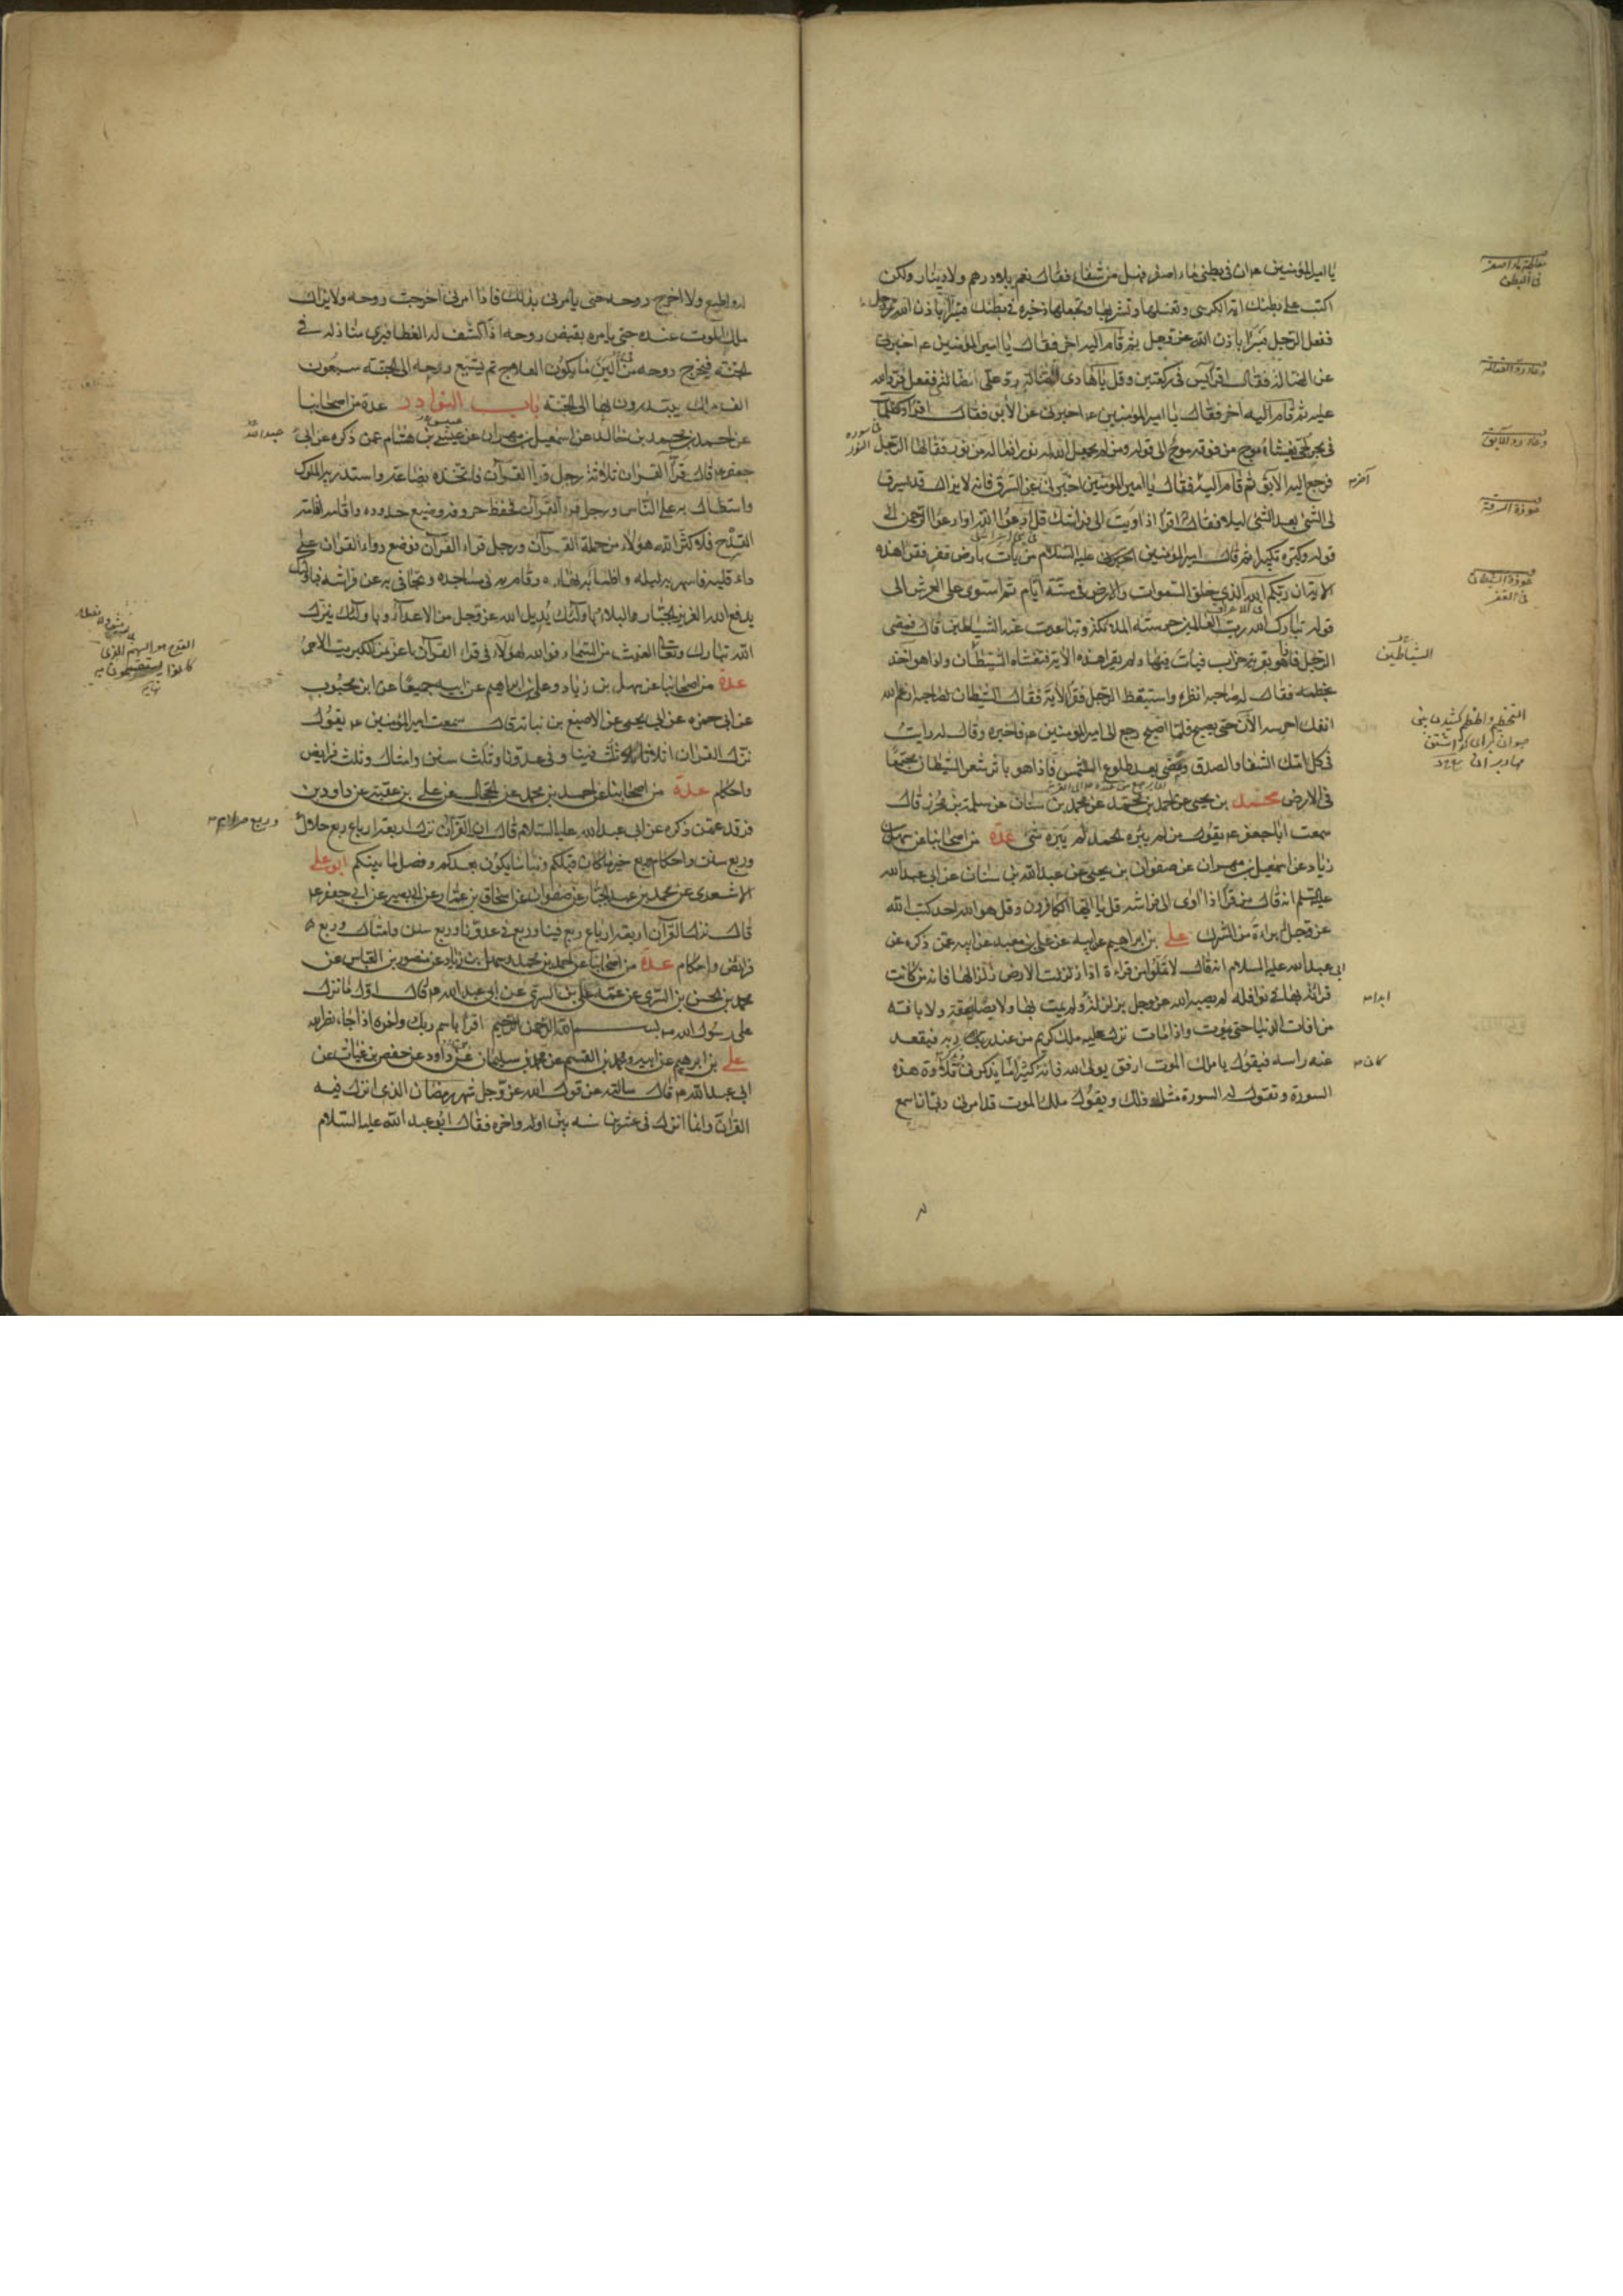 يا امير المؤمنين هران في بطني ماء اصفر فهل من شفاء فقال نعم بلا درهم ولا دينار ولكن
اكتب على بطنك اية الكرسي وتغسلها وتشربها وتجعلها ذخيرة في بطنك فتبرأ باذن الله عز وجل
ففعل الرجل فبرأ باذن الله عز وجل ثم قام اليه اخر فقال يا امير المؤمنين ع اخبرني
عن الضالة فقال اقرأ يس في ركعتين وقل يا هادي الضالة رد علي ضالتي ففعل فرد الله
عليه ثم قام اليه اخر فقال يا امير المؤمنين ع اخبرني عن الآبق فقال اقرأ او كظلمات
في بحر لجي يغشاه موج من فوقه موج الى قوله ومن لم يجعل الله له نورا فما له من نور فقالها الرجل
فرجع اليه الآبق ثم قام اليه فقال يا امير المؤمنين اخبرني عن السرق فانه لا يزال قد يسرق
لي الشئ بعد الشئ ليلا فقال اقرأ اذا اويت الى فراشك قل ادعوا الله او ادعوا الرحمن الى
قوله وكبره تكبيرا ثم قال امير المؤمنين عليه السلام من بات بارض قفر فقرأ هذه
الاية ان ربكم الله الذي خلق السموات والارض في ستة ايام ثم استوى على العرش الى
قوله تبارك الله رب العالمين حرسته الملائكة وتباعدت عنه الشياطين قال فمضى
الرجل فاذا هو بقرية خراب فبات فيها ولم يقرأ هذه الاية فتغشاه الشيطان واذا هو اخذ
بخطمه فقال له صاحبه انظره واستيقظ الرجل فقرأ الاية فقال الشيطان لصاحبه ارغم الله
انفك احرسه الآن حتى يصبح فلما اصبح رجع الى امير المؤمنين ع فاخبره وقال له رايت
في كلامك الشفاء والصدق ومضى بعد طلوع الشمس فاذا هو باثر شعر الشيطان مجتمعا
في الارض محمد بن يحيى عن احمد بن محمد عن محمد بن سنان عن سلمة بن محرز قال
سمعت ابا جعفر ع يقول من لم يبره الحمد لم يبره شئ عدة من اصحابنا عن سهل بن
زياد عن اسمعيل بن مهران عن صفوان بن يحيى عن عبد الله بن سنان عن ابي عبد الله
عليه السلام انه قال من قرأ اذا اوى الى فراشه قل يا ايها الكافرون وقل هو الله احد كتب الله
عز وجل له براءة من الشرك علي بن ابراهيم عن ابيه عن علي بن معبد عن ابيه عمن ذكره عن
ابي عبد الله عليه السلام انه قال لا تملوا من قراءة اذا زلزلت الارض زلزالها فانه من كانت
قرائته بها في نوافله لم يصبه الله عز وجل بزلزلة ولم يمت بها ولا بصاعقة ولا بافة
من افات الدنيا حتى يموت واذا مات نزل عليه ملك كريم من عند ربه فيقعد
عند راسه فيقول يا ملك الموت ارفق بولي الله فانه كثيرا ما يذكرني تلاوة هذه
السورة وتقول له السورة مثل ذلك ويقول ملك الموت قد امرني ربي ان اسمع
معالجة ماء اصفر
في البطن
دعاء رد الضالة
دعاء رد الآبق
في سورة
النور
اخر
عوذة السرقة
عوذة الشيطان
في القفر
الشياطين
ابدا
كان
له واطيع ولا اخرج روحه حتى يأمرني بذلك فاذا امرني اخرجت روحه ولا يزال
ملك الموت عنده حتى يأمره بقبض روحه اذا كشف له الغطا فيرى منازله في
الجنة فيخرج روحه من الين ما يكون العلاج ثم يشيع روحه الى الجنة سبعون
الف ملك يبتدرون بها الى الجنة باب النوادر عدة من اصحابنا
عن احمد بن محمد بن خالد عن اسمعيل بن مهران عن عبيس بن هشام عمن ذكره عن ابي
جعفر ع قال قراء القرآن ثلاثة رجل قرأ القرآن فاتخذه بضاعة واستدر به الملوك
واستطال به على الناس ورجل قرأ القرآن فحفظ حروفه وضيع حدوده واقامه اقامة
القدح فلا كثر الله هؤلاء من حملة القرآن ورجل قرأ القرآن فوضع دواء القرآن على
داء قلبه فاسهر به ليله واظمأ به نهاره وقام به في مساجده وتجافى به عن فراشه فباولئك
يدفع الله العزيز الجبار البلاء وباولئك يديل الله عز وجل من الاعداء وباولئك ينزل
الله تبارك وتعالى الغيث من السماء فوالله لهؤلاء في قراء القرآن اعز من الكبريت الاحمر
عدة من اصحابنا عن سهل بن زياد وعلي بن ابراهيم عن ابيه جميعا عن ابن محبوب
عن ابي حمزة عن ابي يحيى عن الاصبغ بن نباتة قال سمعت امير المؤمنين ع يقول
نزل القرآن اثلاثا ثلث فينا وفي عدونا وثلث سنن وامثال وثلث فرايض
واحكام عدة من اصحابنا عن احمد بن محمد عن الحجال عن علي بن عقبة عن داود بن
فرقد عمن ذكره عن ابي عبد الله عليه السلام قال ان القرآن نزل اربعة ارباع ربع حلال
وربع سنن واحكام وربع خبر ما كان قبلكم ونبأ ما يكون بعدكم وفصل ما بينكم ابو علي
الاشعري عن محمد بن عبد الجبار عن صفوان عن اسحاق بن عمار عن ابي بصير عن ابي جعفر ع
قال نزل القرآن اربعة ارباع ربع فينا وربع في عدونا وربع سنن وامثال وربع
فرائض واحكام عدة من اصحابنا عن احمد بن محمد وسهل بن زياد عن منصور بن العباس عن
محمد بن الحسن بن السري عن عمه علي بن السري عن ابي عبد الله ع قال اول ما نزل
على رسول الله ص بسم الله الرحمن الرحيم اقرأ باسم ربك واخره اذا جاء نصر الله
علي بن ابرهيم عن ابيه ومحمد بن القسم عن محمد بن سليمان عن داود عن حفص بن غياث عن
ابي عبد الله ع قال سألته عن قول الله عز وجل شهر رمضان الذي انزل فيه
القرآن وانما انزل في عشرين سنة بين اوله واخره فقال ابو عبد الله عليه السلام
عبد الله
وربع حرام
القدح هو السهم الذي
كانوا يستقسمون به
نهاية